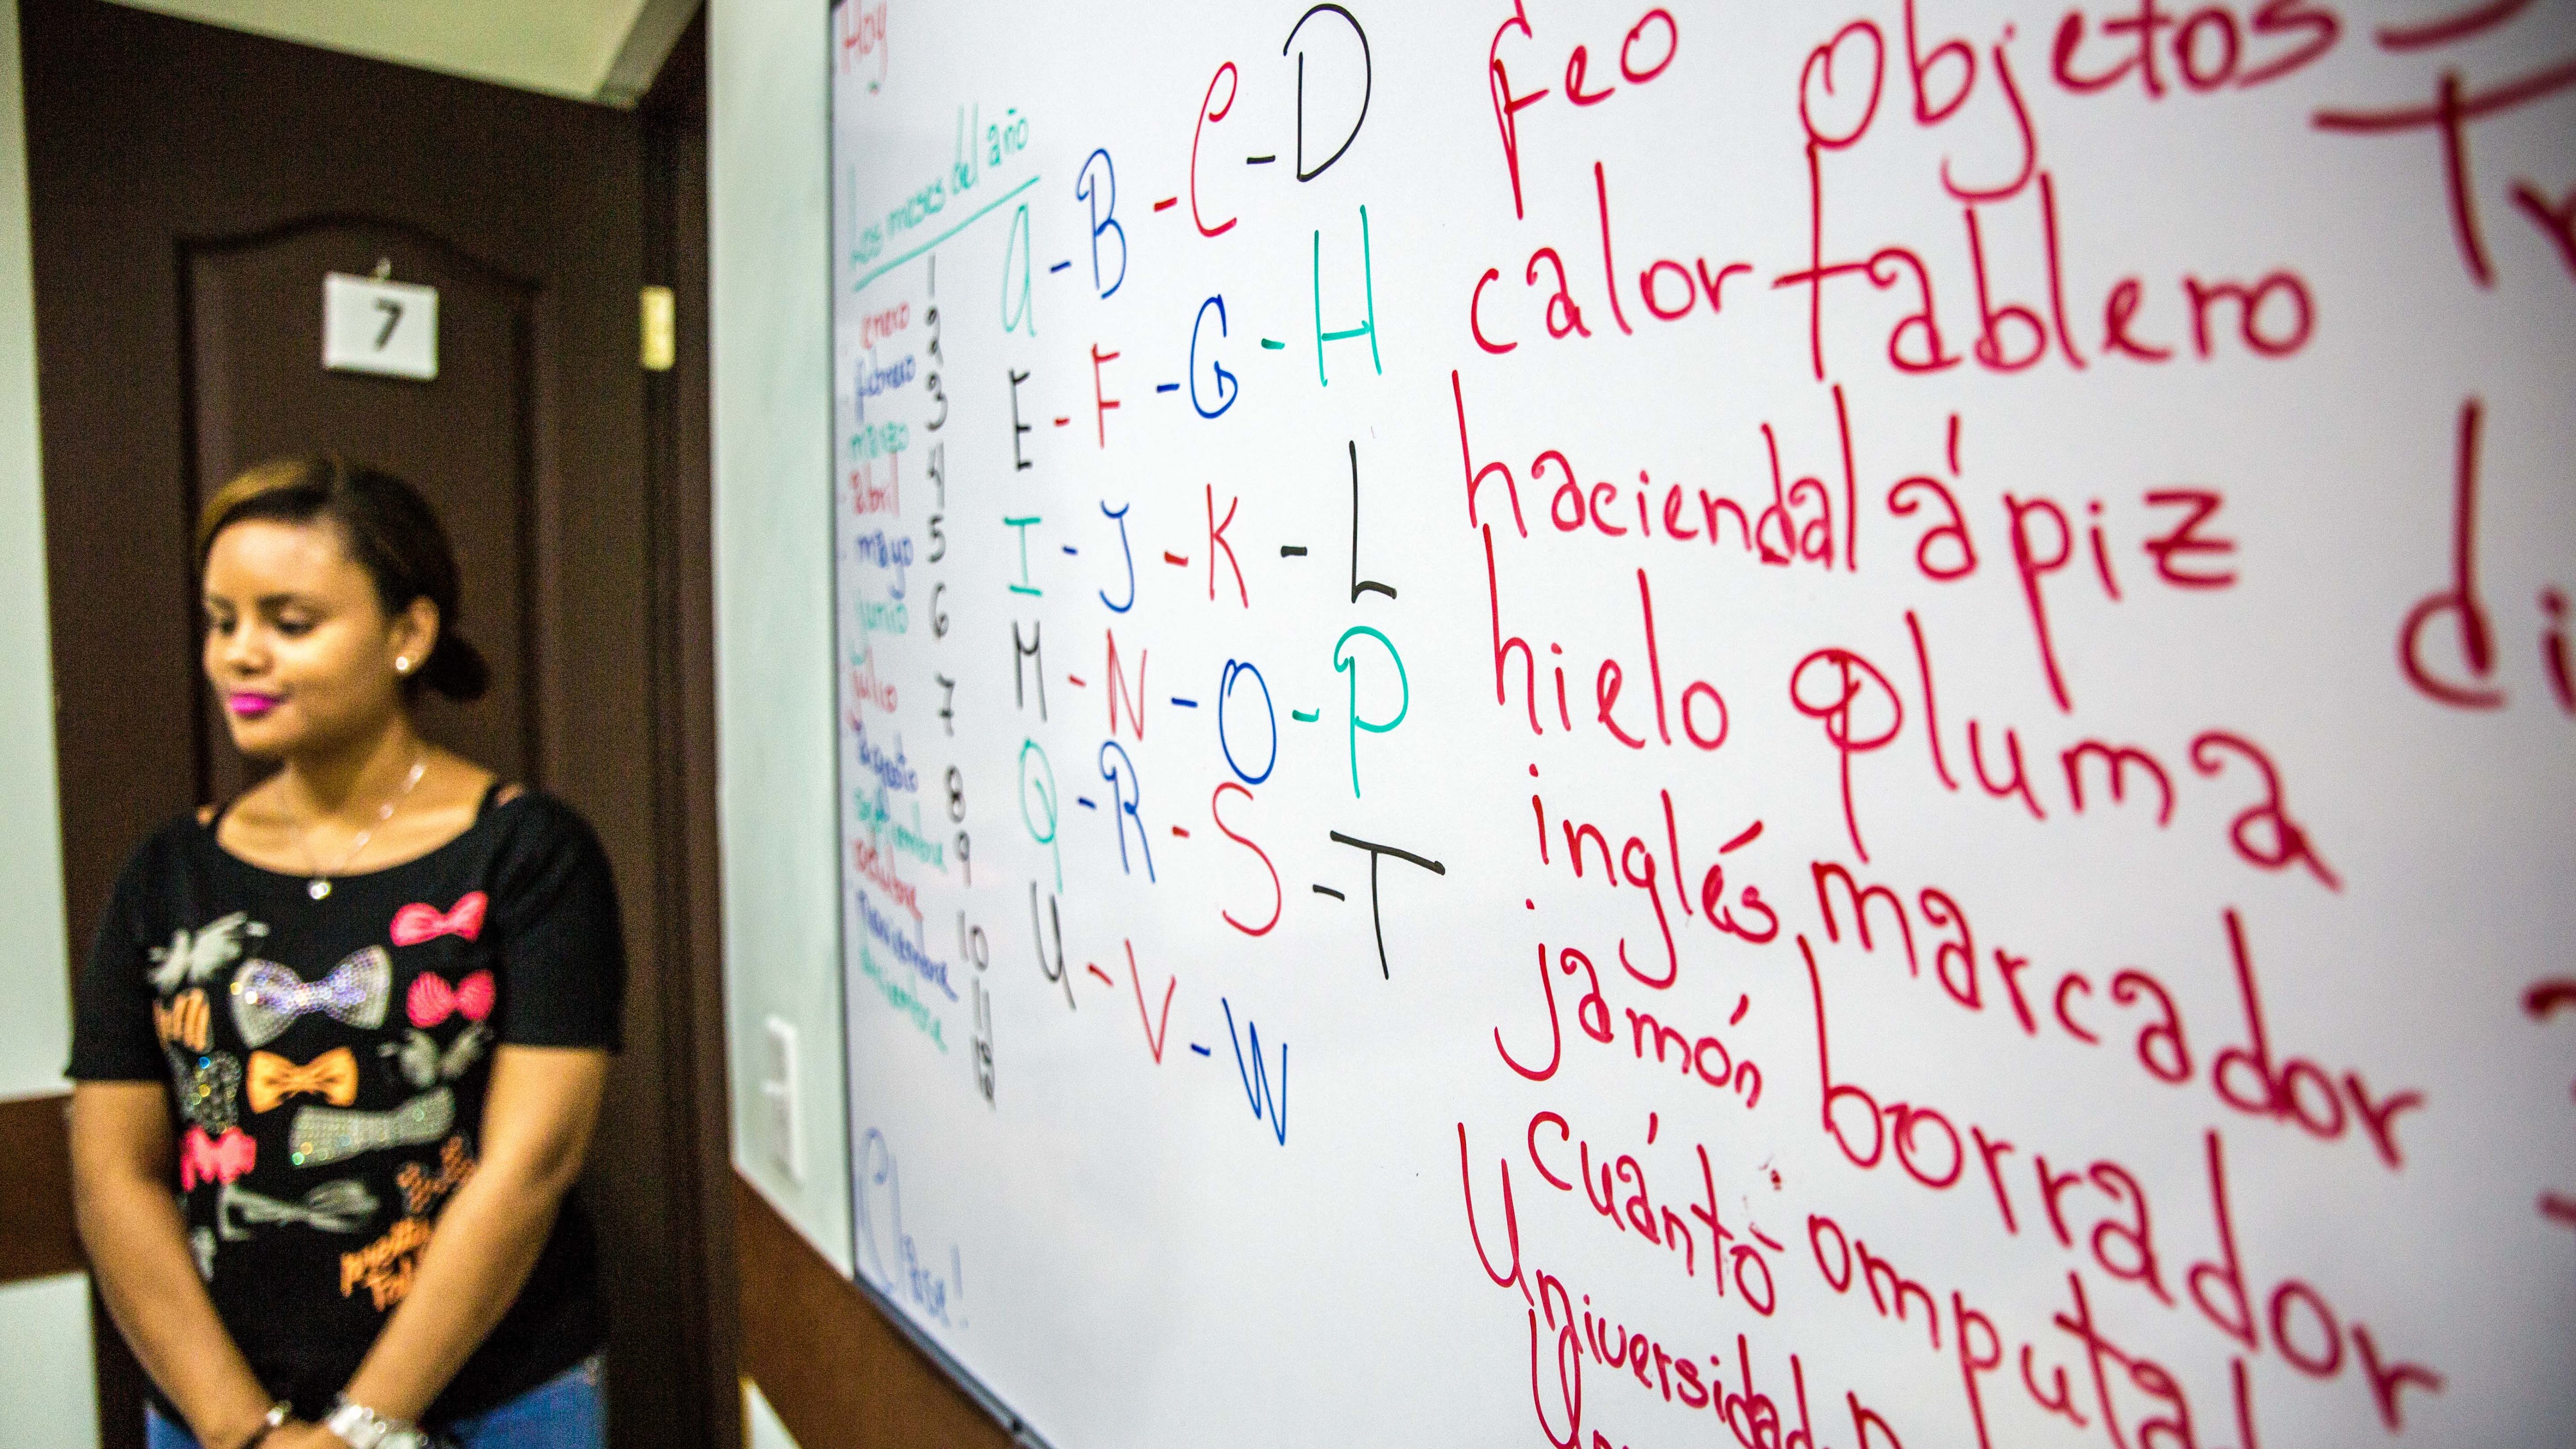 7
Hoy
Los meses del año
enero 1
febrero 2
marzo 3
abril 4
mayo 5
junio 6
julio 7
agosto 8
septiembre 9
octubre 10
noviembre 11
diciembre 12
Clase!
A - B - C - D
E - F - G - H
I - J - K - L
M - N - O - P
Q - R - S - T
U - V - W
feo
calor
hacienda
hielo
inglés
jamón
cuánto
Universidad
Objetos
tablero
lápiz
pluma
marcador
borrador